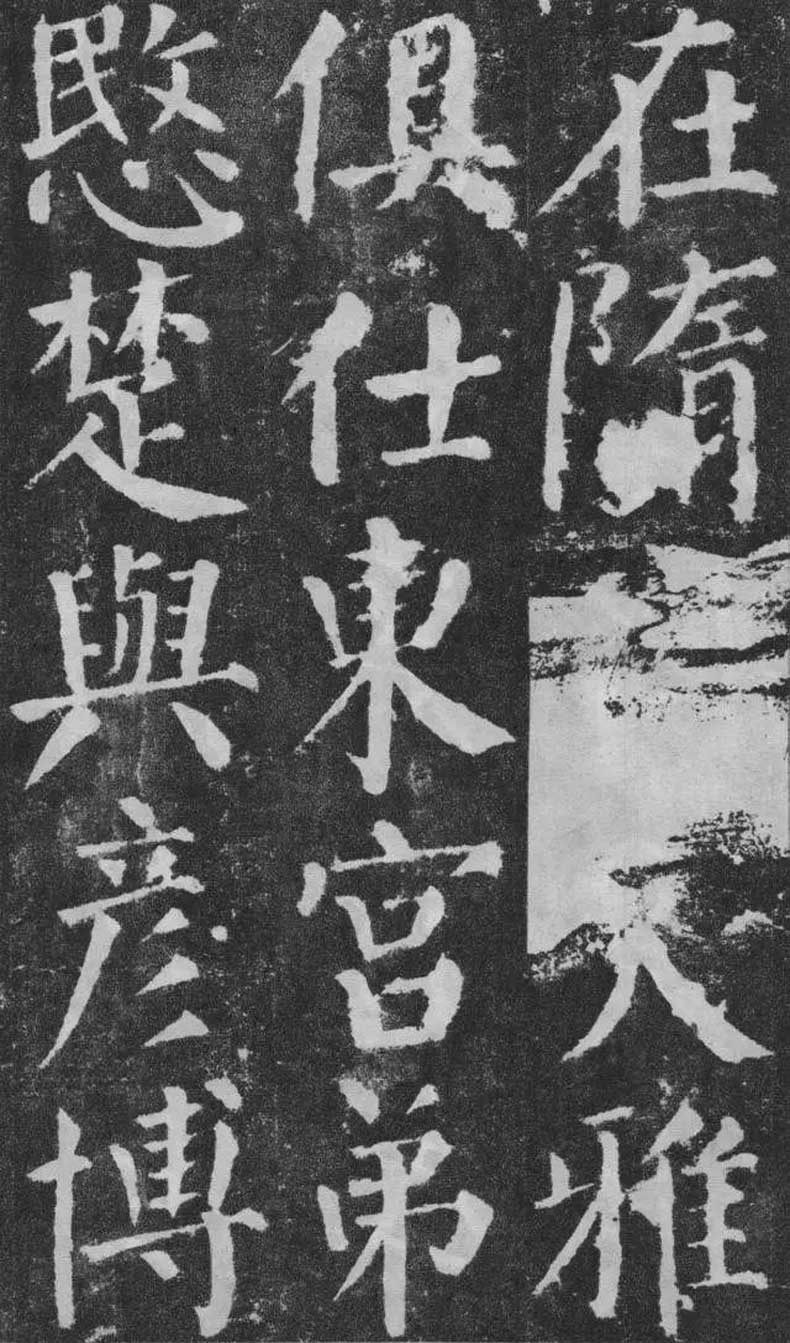 在隋大雅
俱仕東宮弟
愍楚與彦博